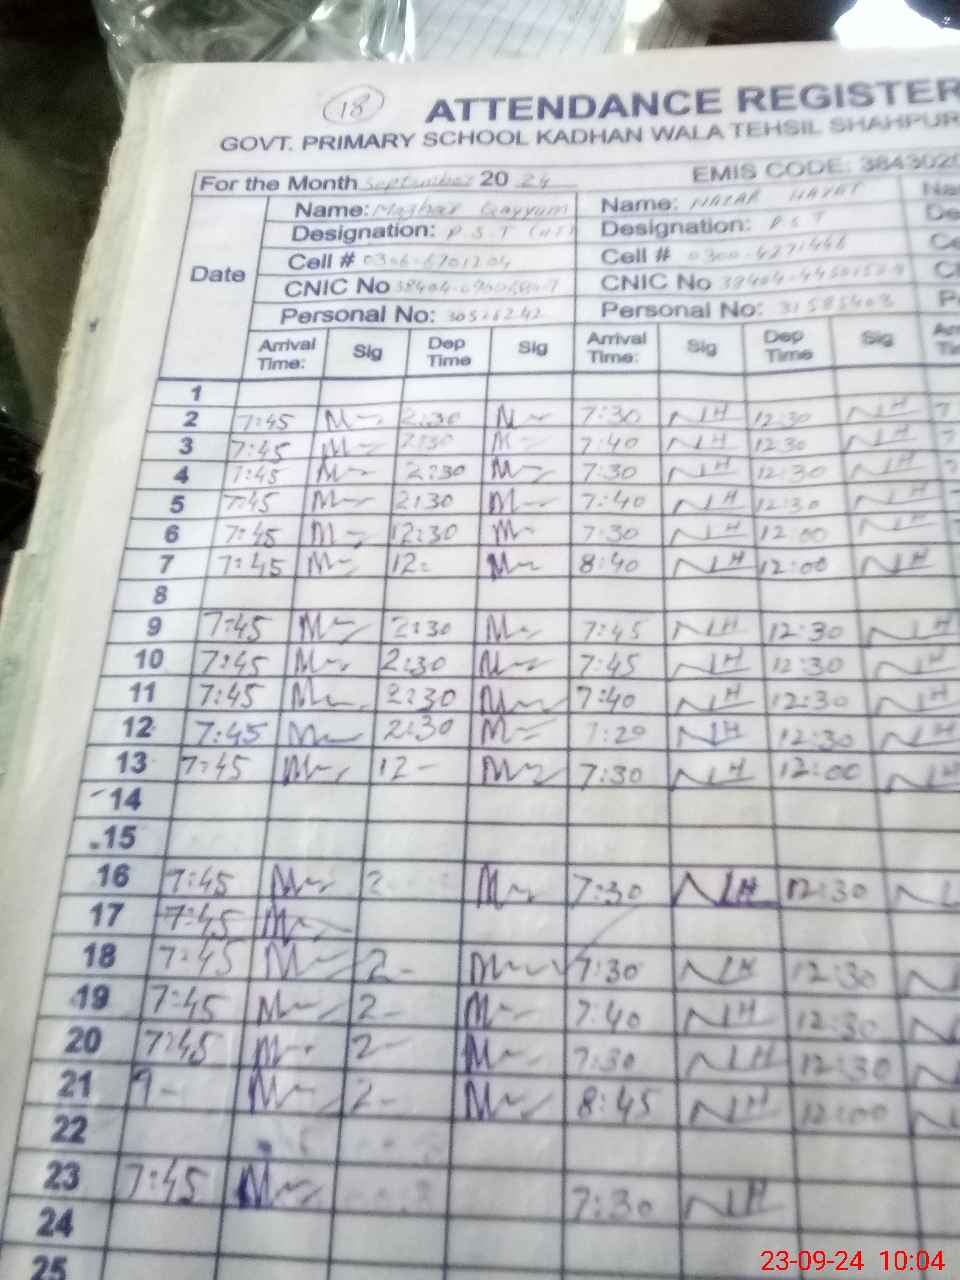 18
ATTENDANCE REGISTER
GOVT. PRIMARY SCHOOL KADHAN WALA TEHSIL SHAHPUR
EMIS CODE: 3843020
For the Month September 20 24
Date
Name: Mazhar Qayyum Name: NAZAR HAYAT Na
Designation: P.S.T Designation: P.S.T De
Cell # 0306-6701204 Cell # 0300-4271446 Ce
CNIC No CNIC No
Personal No: 30526242 Personal No: 31585403
Arrival Time: Sig Dep Time Sig Arrival Time: Sig Dep Time Sig
1
2 7:45 M 2:30 M 7:30 NH 12:30 NH 7
3 7:45 M 2:30 M 7:40 NH 12:30 NH 7
4 7:45 M 2:30 M 7:30 NH 12:30 NH
5 7:45 M 2:30 M 7:40 NH 12:30 NH
6 7:45 M 12:30 M 7:30 NH 12:00 NH
7 7:45 M 12: M 8:40 NH 12:00 NH
8
9 7:45 M 2:30 M 7:45 NH 12:30 NH
10 7:45 M 2:30 M 7:45 NH 12:30 NH
11 7:45 M 2:30 M 7:40 NH 12:30 NH
12 7:45 M 2:30 M 7:20 NH 12:30 NH
13 7:45 M 12- M 7:30 NH 12:00 NH
14
15
16 7:45 M 2 M 7:30 NH 12:30 N
17 7:45 M
18 7:45 M 2- M 7:30 NH 12:30 N
19 7:45 M 2- M 7:40 NH 12:30 N
20 7:45 M 2- M 7:30 NH 12:30 N
21 9- M 2- M 8:45 NH 12:00 N
22
23 7:45 M 7:30 NH
24
25
23-09-24 10:04